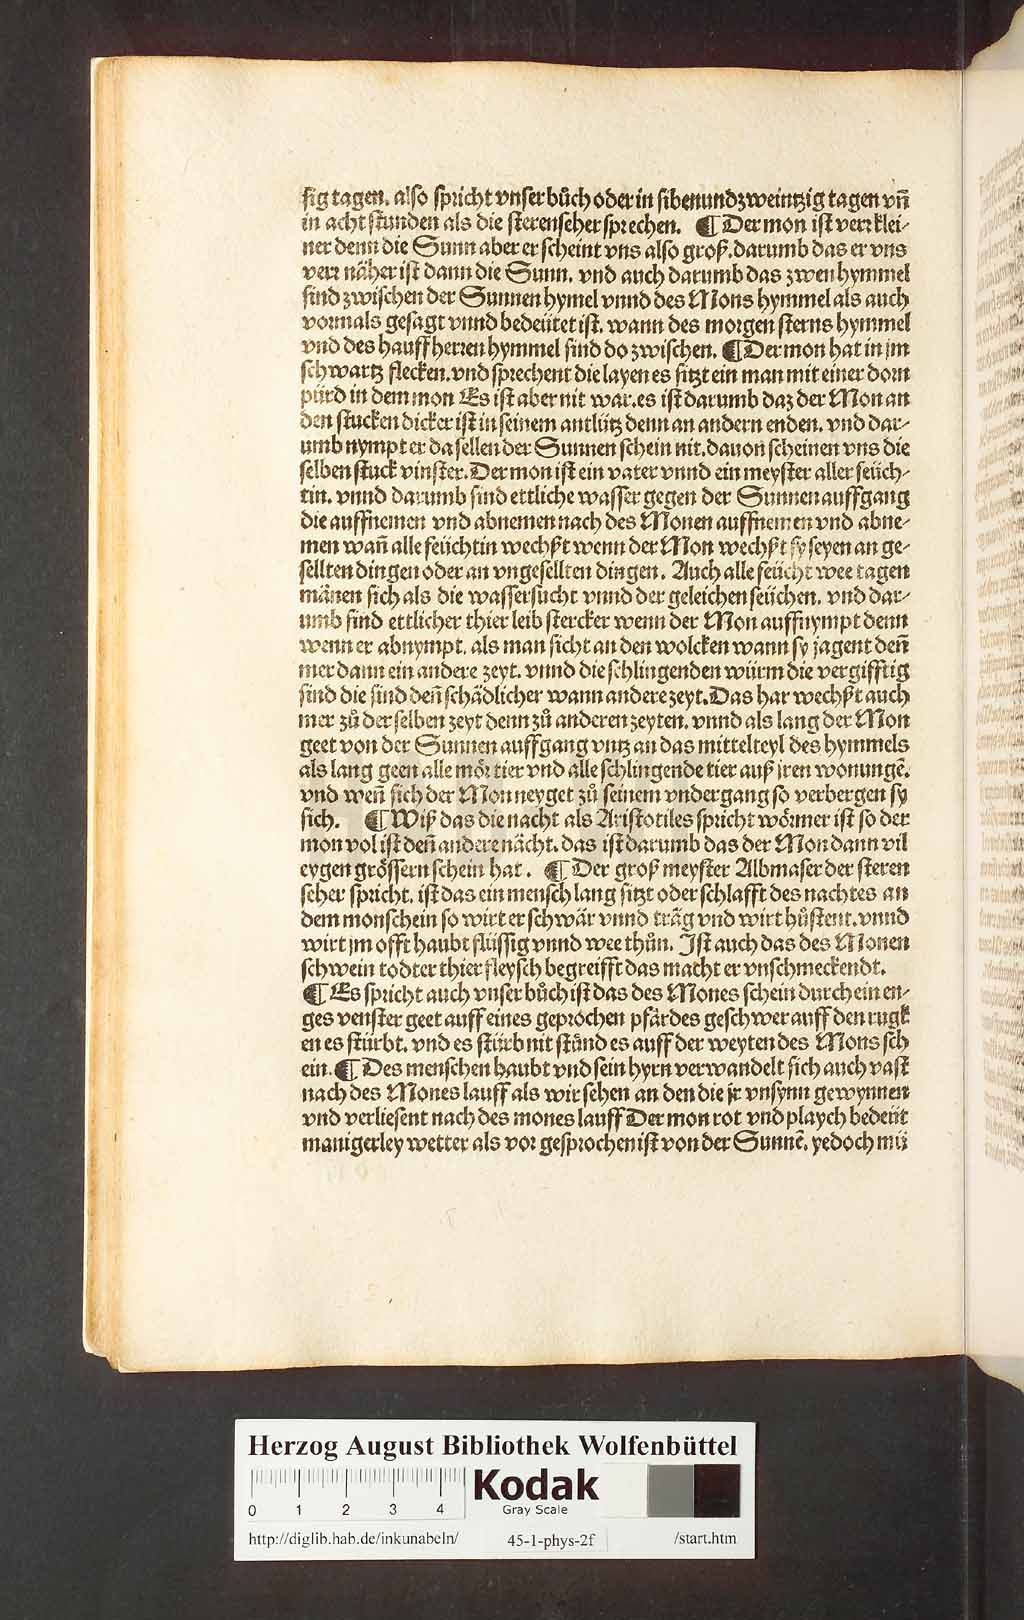 sig tagen. also spricht vnser bůch oder in sibenundzweintzig tagen vñ
in acht stunden als die sterenseher sprechen. ¶ Der mon ist verr klei-
ner denn die Sunn aber er scheint vns also groß. darumb das er vns
verr näher ist dann die Sunn. vnd auch darumb das zwen hymmel
sind zwischen der Sunnen hymel vnnd des Mons hymmel als auch
vormals gesagt vnnd bedeütet ist. wann des morgen sterns hymmel
vnd des hauffherren hymmel sind do zwischen. ¶ Der mon hat in jm
schwartz flecken. vnd sprechent die layen es sitzt ein man mit einer dorn
pürd in dem mon Es ist aber nit war. es ist darumb daz der Mon an
den stucken dicker ist in seinem antlütz denn an andern enden. vnd dar-
umb nympt er da sellen der Sunnen schein nit. dauon scheinen vns die
selben stuck vinster. Der mon ist ein vater vnnd ein meyster aller feüch-
tin. vnnd darumb sind ettliche wasser gegen der Sunnen auffgang
die auffnemen vnd abnemen nach des Monen auffnemen vnd abne-
men wañ alle feüchtin wechßt wenn der Mon wechßt sy seyen an ge-
sellten dingen oder an vngesellten dingen. Auch alle feücht wee tagen
mänen sich als die wassersucht vnnd der geleichen seüchen. vnd dar-
umb sind ettlicher thier leib stercker wenn der Mon auffnympt denn
wenn er abnympt. als man sicht an den wolcken wann sy jagent deñ
mer dann ein andere zeyt. vnnd die schlingenden würm die vergifftig
sind die sind deñ schädlicher wann andere zeyt. Das har wechßt auch
mer zů der selben zeyt denn zů anderen zeyten. vnnd als lang der Mon
geet von der Sunnen auffgang vntz an das mittelteyl des hymmels
als lang geen alle mör tier vnd alle schlingende tier auß jren wonungē.
vnd weñ sich der Mon neyget zů seinem vndergang so verbergen sy
sich. ¶ Wiß das die nacht als Aristotiles spricht wörmer ist so der
mon vol ist deñ andere nächt. das ist darumb das der Mon dann vil
eygen grössern schein hat. ¶ Der groß meyster Albmaser der steren
seher spricht. ist das ein mensch lang sitzt oder schlafft des nachtes an
dem monschein so wirt er schwär vnnd träg vnd wirt hůstent. vnnd
wirt jm offt haubt flüssig vnnd wee thůn. Ist auch das des Monen
schwein todter thier fleysch begreifft das macht er vnschmeckendt.
¶ Es spricht auch vnser bůch ist das des Mones schein durch ein en-
ges venster geet auff eines geprochen pfärdes geschwer auff den rugk
en es stürbt. vnd es stürb nit stůnd es auff der weyten des Mons sch
ein. ¶ Des menschen haubt vnd sein hyrn verwandelt sich auch vast
nach des Mones lauff als wir sehen an den die jr vnsynn gewynnen
vnd verliesent nach des mones lauff Der mon rot vnd playch bedeüt
manigerley wetter als vor gesprochen ist von der Sunnē. yedoch mü
Herzog August Bibliothek Wolfenbüttel
0 1 2 3 4
Kodak
Gray Scale
http://diglib.hab.de/inkunabeln/ 45-1-phys-2f /start.htm